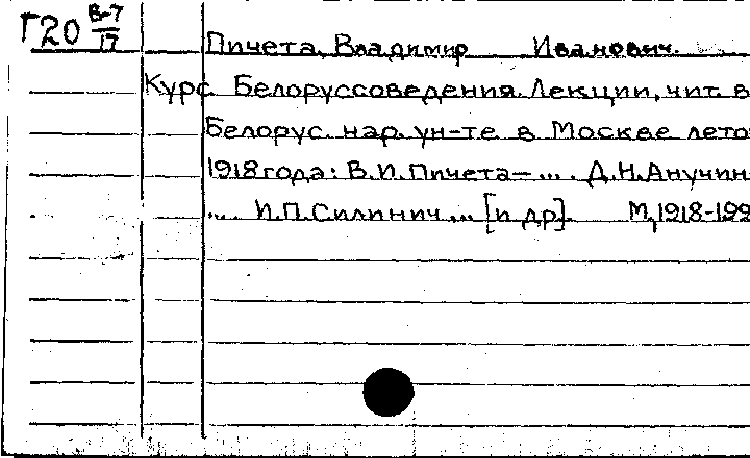 Г20 В-7/17
Пичета, Владимир Иванович.
Курс Белоруссоведения. Лекции, чит. в
Белорус. нар. ун-те в Москве лето
1918 года: В.И. Пичета — ... Д.Н. Анучин
... И.П. Силинич ... [и др]. М, 1918-199